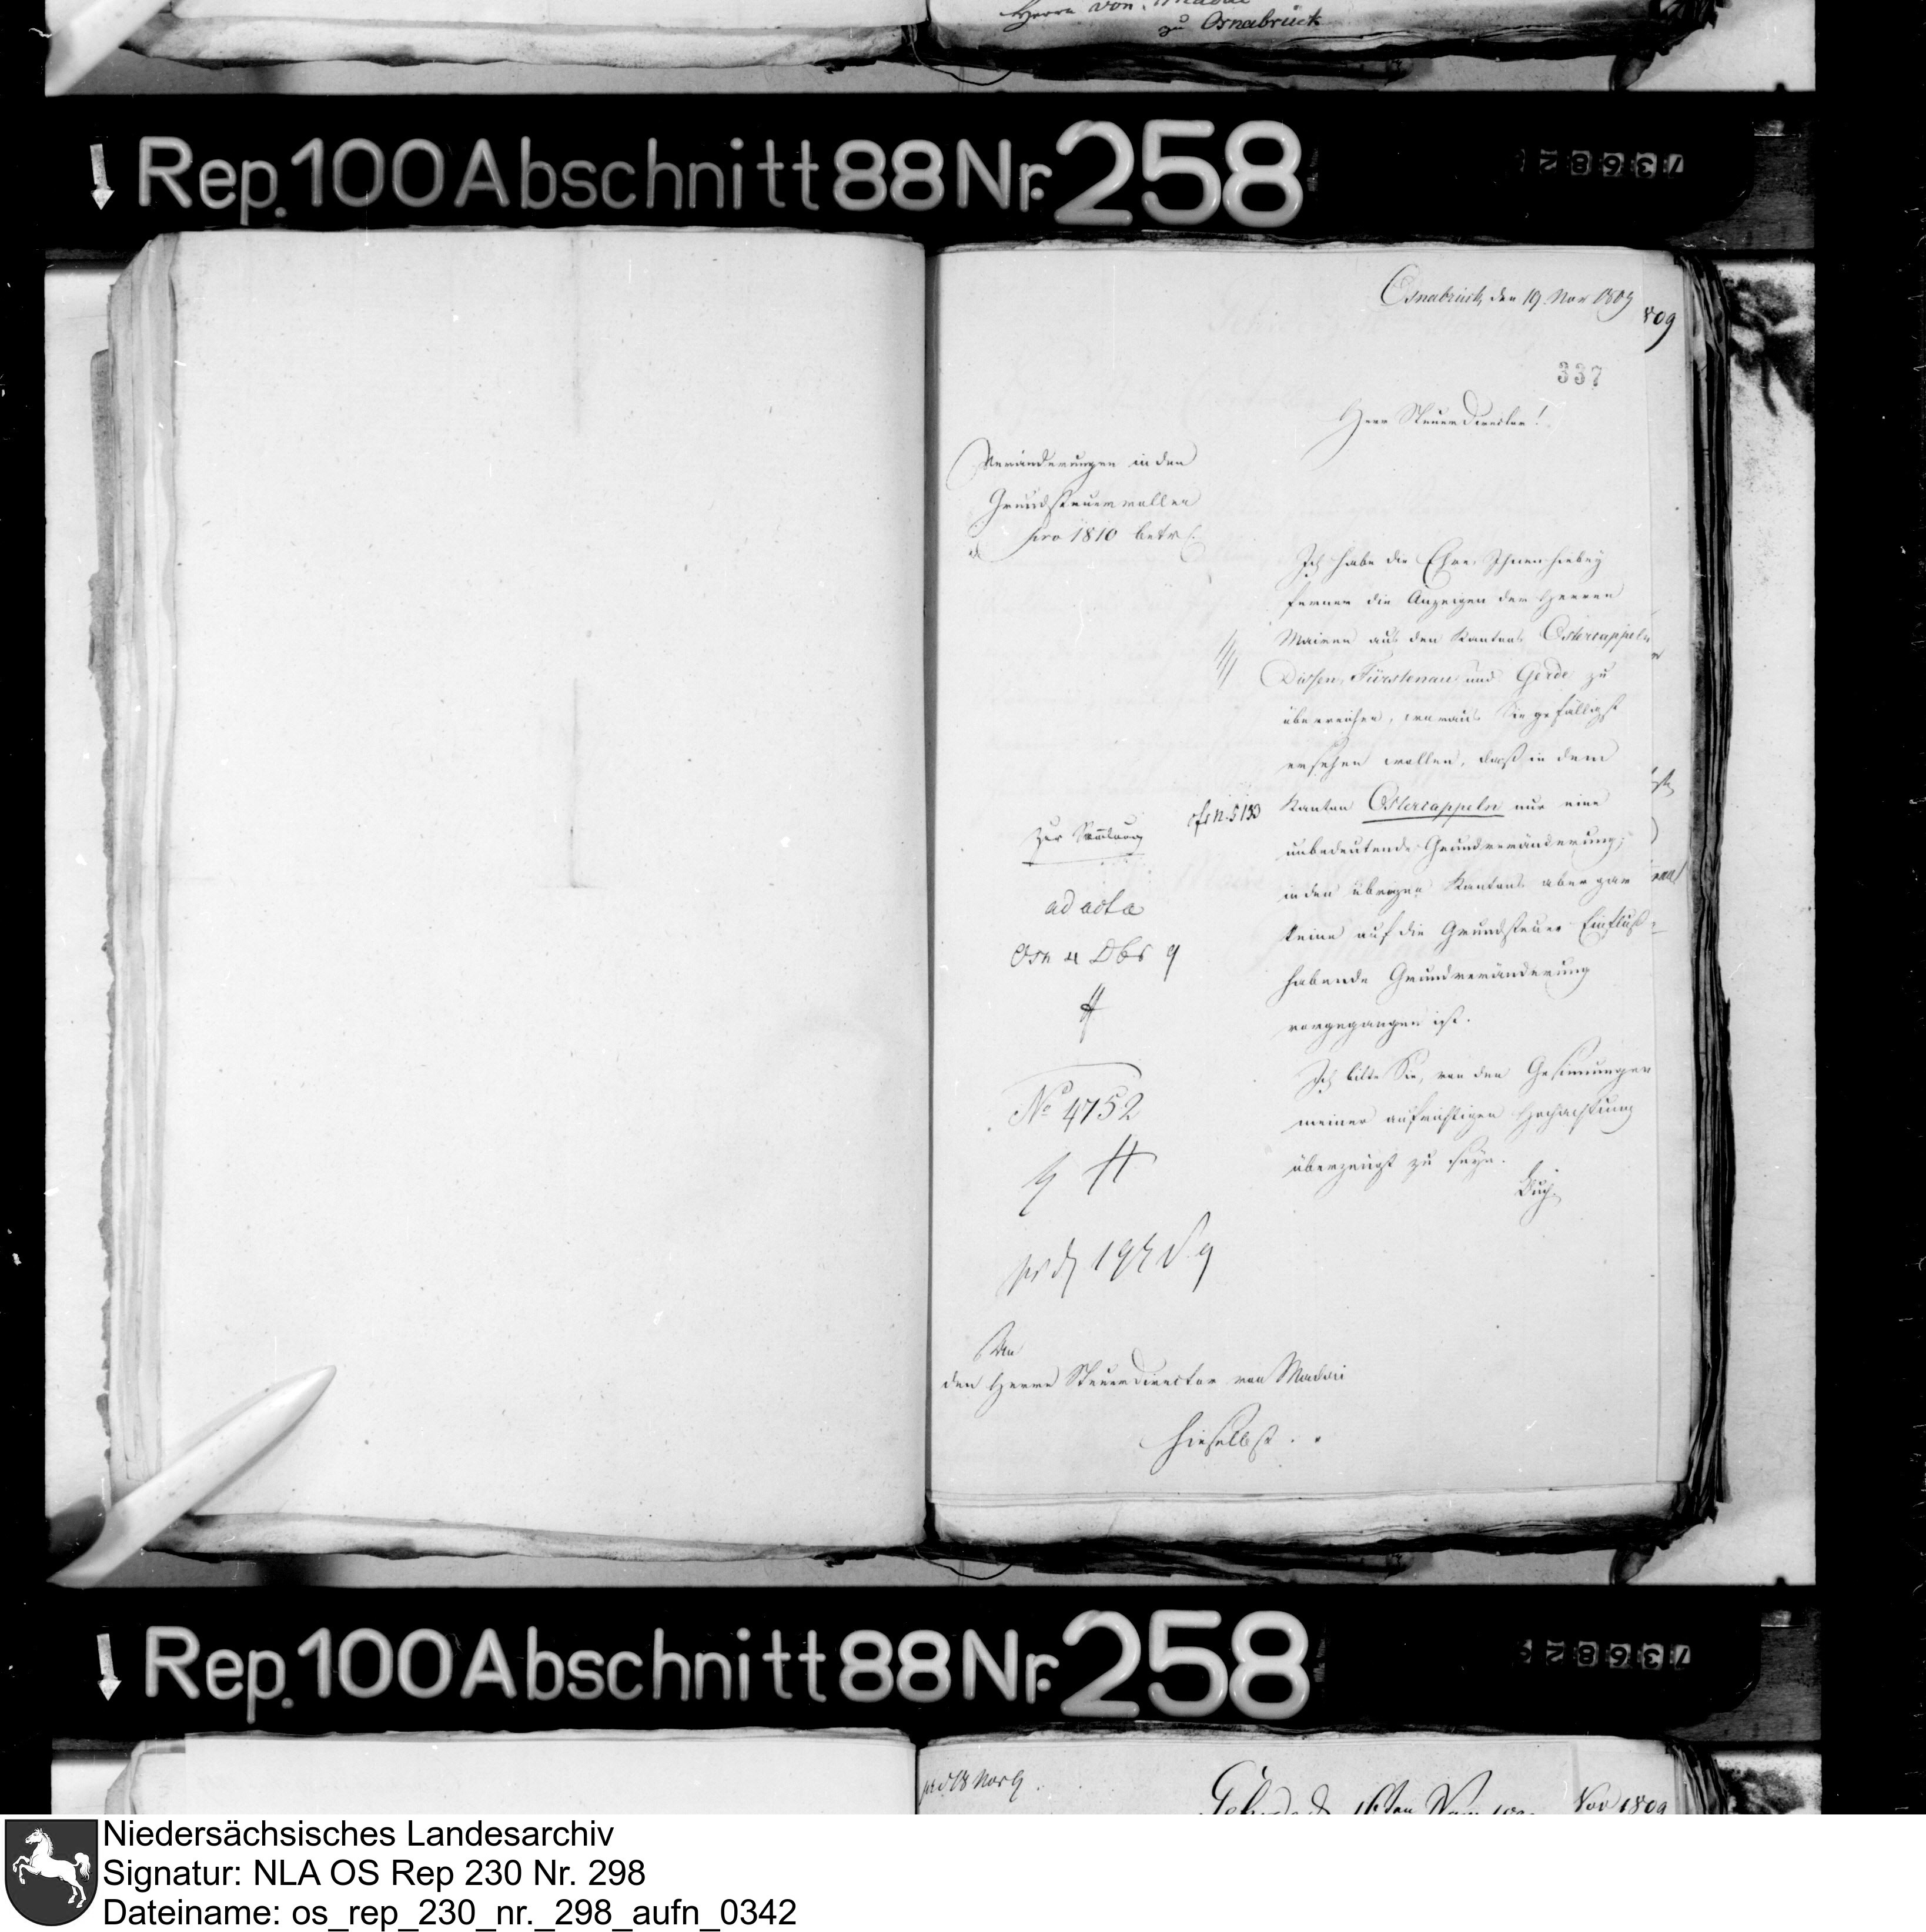 Herrn von
zu Osnabrück
Rep. 100 Abschnitt 88 Nr. 258
73682
Osnabrück den 19 Nov 1809
809
337
Herr SteuerDirector!
Veränderungen in den
Grundsteuerrollen
pro 1810 betr.
Ich habe die Ehre, Ihnen hiebey
ferner die Anzeigen der Herren
Mairen aus den Kantons Ostercappeln
Dissen, Fürstenau und Gerde zu
überreichen, woraus Sie gefälligst
ersehen wollen, daß in dem
Kanton Ostercappeln nur eine
unbedeutende Grundveränderung;
in den übrigen Kantons aber gar
keine auf die Grundsteuer Einfluß
habende Grundveränderung
vorgegangen ist.
Ich bitte Sie, von den Gesinnungen
meiner aufrichtigen Hochachtung
überzeugt zu seyn.
cfr n. 5133
Zur Samlung
ad acta
Osn 4 Dbr 9
No 4752
An
den Herrn SteuerDirector von Madai
hieselbst.
Rep. 100 Abschnitt 88 Nr. 258
73682
Nov 1809
Niedersächsisches Landesarchiv
Signatur: NLA OS Rep 230 Nr. 298
Dateiname: os_rep_230_nr._298_aufn_0342